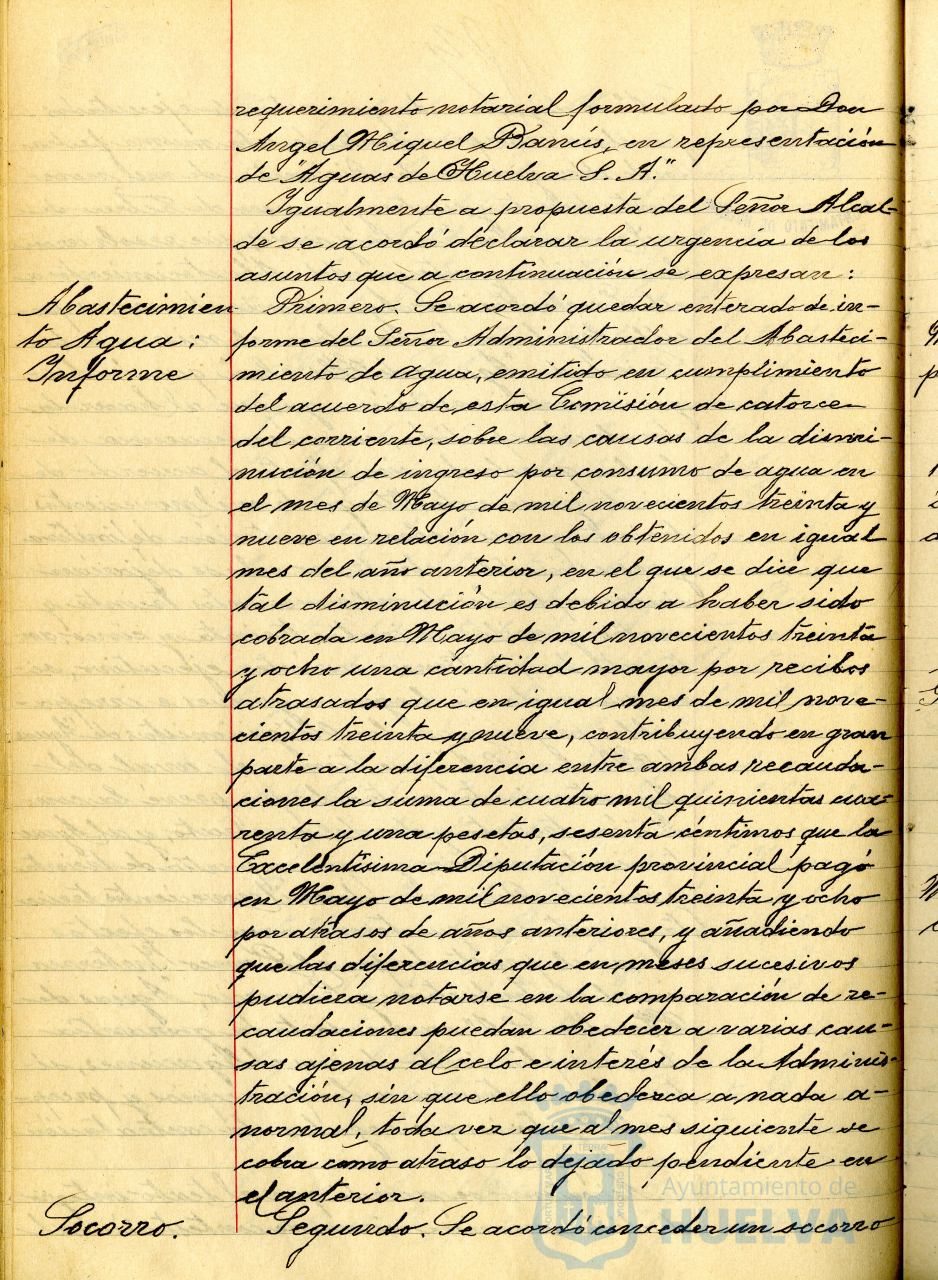 requerimiento notarial formulado por Don
Angel Miquel Banús, en representación
de "Aguas de Huelva S. A."
Igualmente a propuesta del Señor Alcal-
de se acordó declarar la urgencia de los
asuntos que a continuación se expresan:
Abastecimien
to Agua:
Informe
Primero. Se acordó quedar enterado de in-
forme del Señor Administrador del Abasteci-
miento de agua, emitido en cumplimiento
del acuerdo de esta Comisión de catorce
del corriente, sobre las causas de la dismi-
nución de ingreso por consumo de agua en
el mes de Mayo de mil novecientos treinta y
nueve en relación con los obtenidos en igual
mes del año anterior, en el que se dice que
tal disminución es debido a haber sido
cobrada en Mayo de mil novecientos treinta
y ocho una cantidad mayor por recibos
atrasados que en igual mes de mil nove-
cientos treinta y nueve, contribuyendo en gran
parte a la diferencia entre ambas recauda-
ciones la suma de cuatro mil quinientas cua-
renta y una pesetas, sesenta céntimos que la
Excelentísima Diputación provincial pagó
en Mayo de mil novecientos treinta y ocho
por atrasos de años anteriores, y añadiendo
que las diferencias que en meses sucesivos
pudiera notarse en la comparación de re-
caudaciones puedan obedecer a varias cau-
sas ajenas al celo e interés de la Adminis-
tración, sin que ello obedezca a nada a-
normal, toda vez que al mes siguiente se
cobra como atraso lo dejado pendiente en
el anterior.
Socorro.
Segundo. Se acordó conceder un socorro
Ayuntamiento de
HUELVA